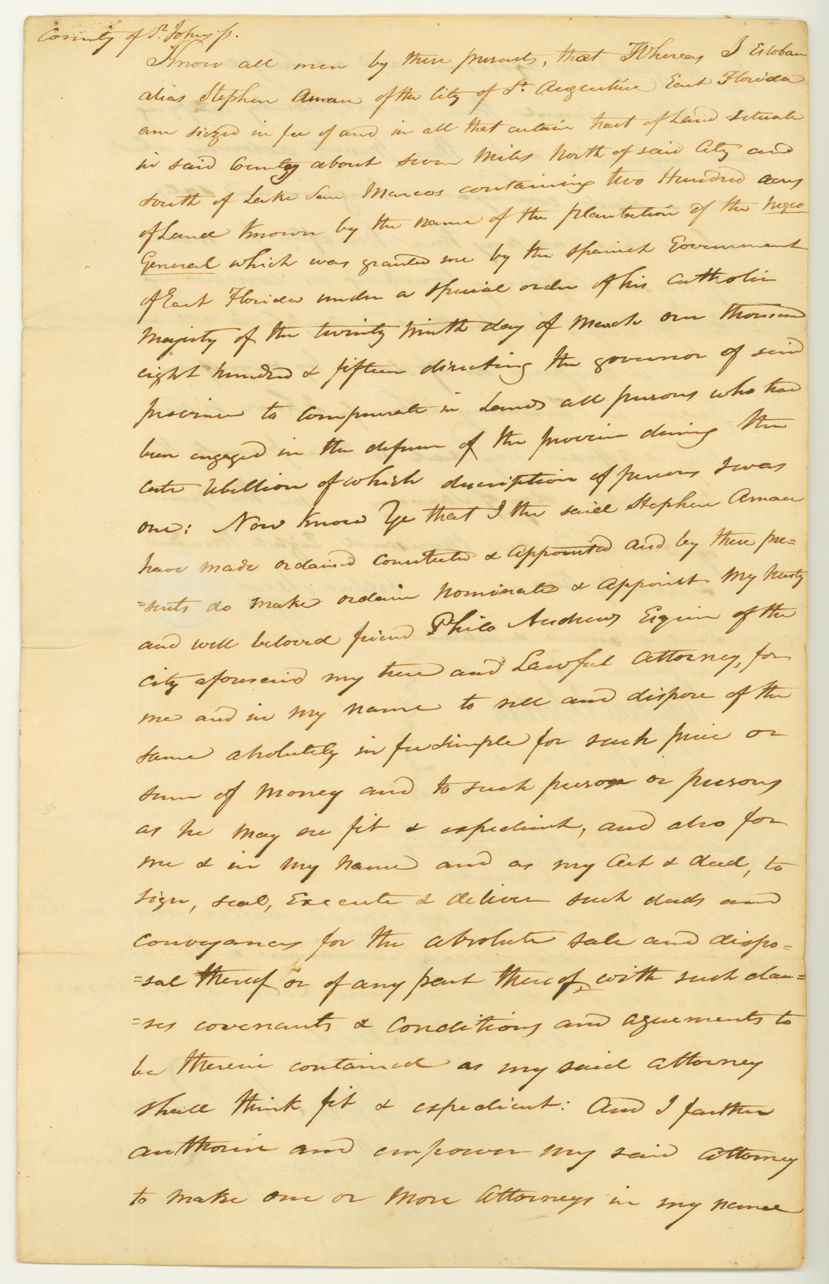 County of St. Johns ss.
Know all men by these presents, that Whereas I Esteban
alias Stephen Arnau of the City of St. Augustine East Florida
am siezed in fee of and in all that certain tract of Land situate
in said County about seven Miles North of said City and
south of Lake San Marcos containing two Hundred acres
of Land Known by the name of the plantation of the Negro
General which was granted me by the Spanish Government
of East Florida under a special order of his Catholic
Majesty of the twenty ninth day of March one thousand
eight hundred & fifteen directing the governor of said
province to compensate in Lands all persons who had
been engaged in the defense of the province during the
late rebellion of which description of persons I was
one: Now Know Ye that I the said Stephen Arnau
have made ordained constituted & appointed and by these pre=
=sents do make ordain nominate & appoint My trusty
and well beloved friend Philo Andrews Esquire of the
City aforesaid my true and Lawful Attorney, for
me and in my name to sell and dispose of the
same absolutely in fee simple for such price or
sum of Money and to such person or persons
as he may see fit & expedient, and also for
me & in my name and as my Act & deed, to
sign, seal, Execute & deliver such deeds and
conveyances for the absolute sale and dispo=
=sal thereof or of any part thereof, with such clau=
=ses covenants & Conditions and agreements to
be therein contained as my said attorney
shall think fit & expedient: And I further
authorise and empower my said attorney
to make one or More Attorneys in my name